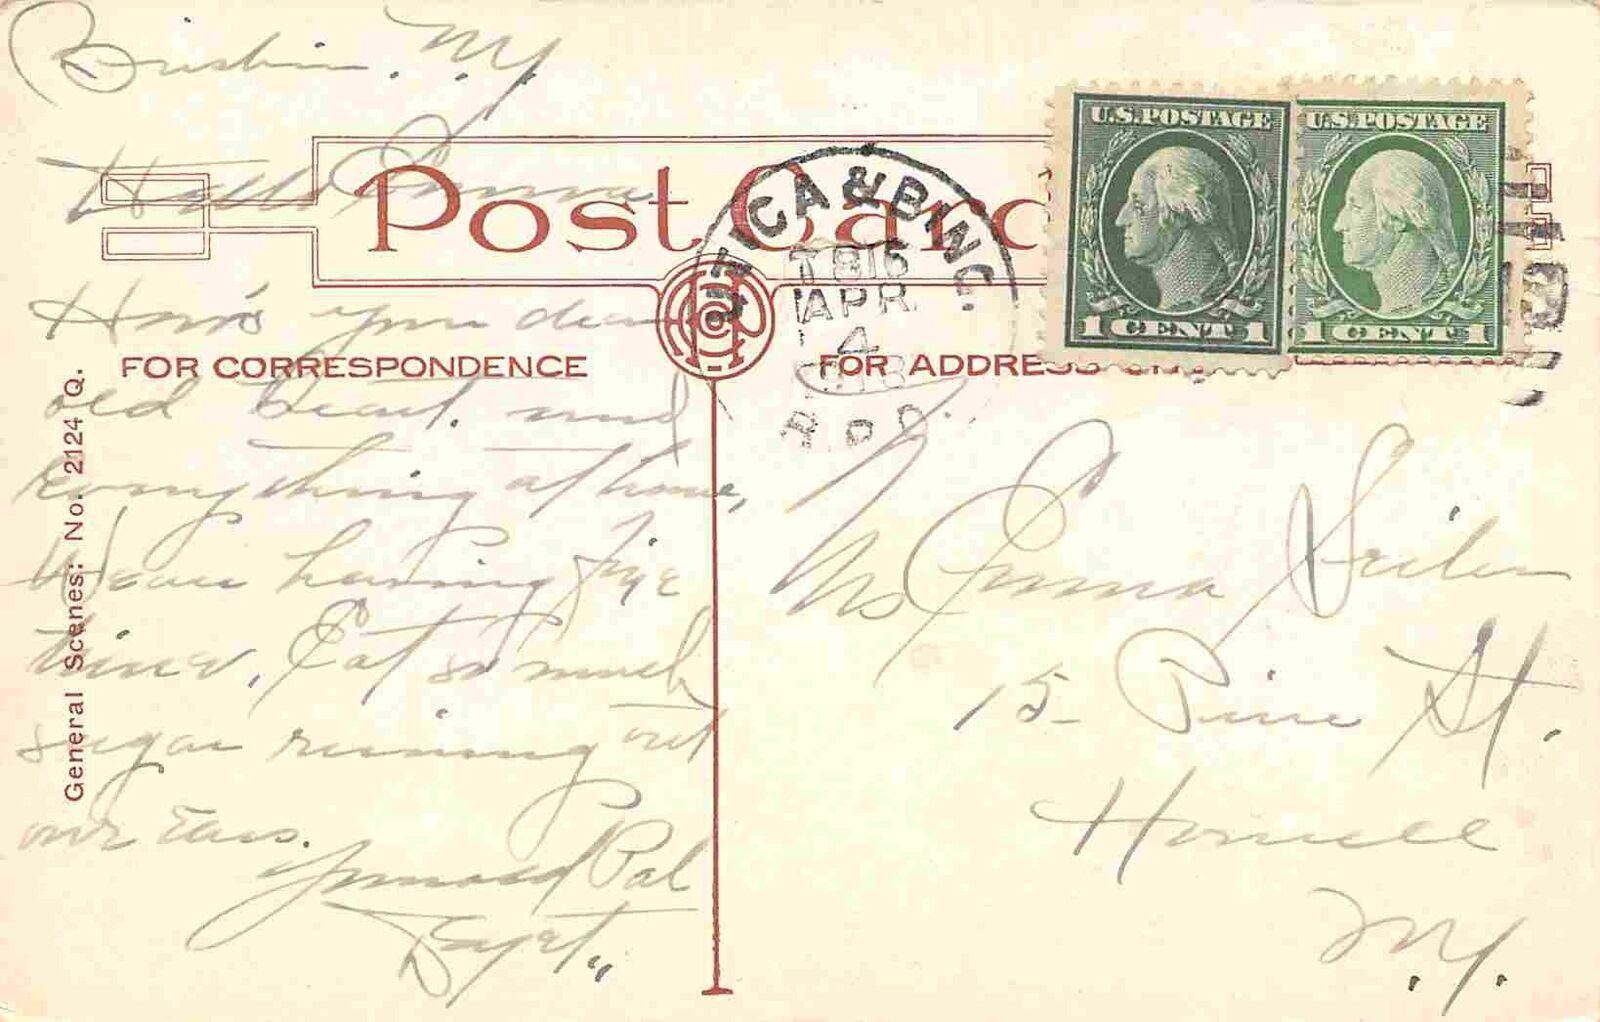 Brisbin, N.Y.
Hello Emma
Post Card
UTICA & BING.
T 816
APR
4
R.P.O.
U.S. POSTAGE
1 CENT 1
U.S. POSTAGE
1 CENT 1
FOR CORRESPONDENCE
FOR ADDRESS
How's your dear
old heart and
everything at home,
We are having fine
time, Eat so much
sugar running out
our Ears.
Your old Pal
General Scenes: No. 2124 Q.
Ms Emma
15 Pine St.
Hornell
N.Y.